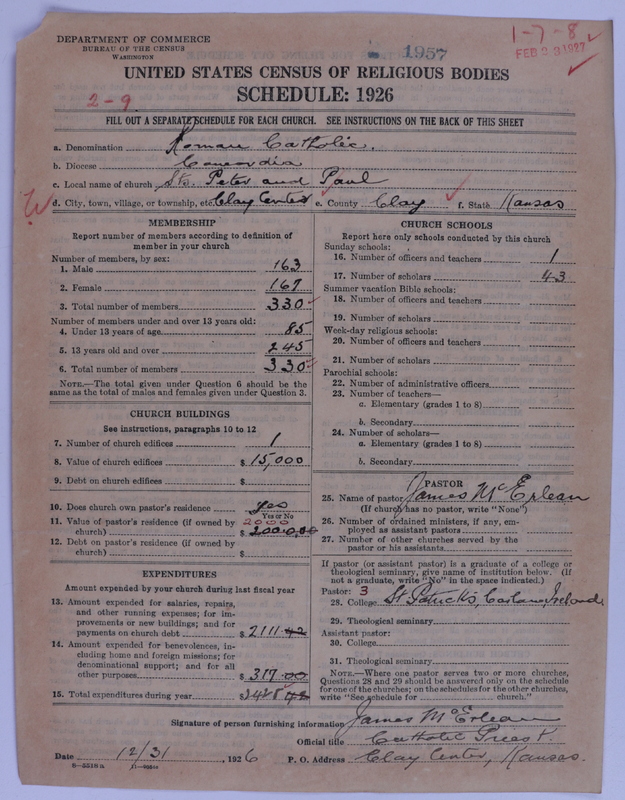 DEPARTMENT OF COMMERCE
BUREAU OF THE CENSUS
WASHINGTON
1957
1-7-8
FEB 23 1927
UNITED STATES CENSUS OF RELIGIOUS BODIES
SCHEDULE: 1926
2-9
FILL OUT A SEPARATE SCHEDULE FOR EACH CHURCH. SEE INSTRUCTIONS ON THE BACK OF THIS SHEET
a. Denomination Roman Catholic.
b. Diocese Concordia
c. Local name of church Sts. Peter and Paul
d. City, town, village, or township, etc. Clay Center e. County Clay f. State Kansas
MEMBERSHIP
Report number of members according to definition of
member in your church
Number of members, by sex:
1. Male 163
2. Female 167
3. Total number of members 330
Number of members under and over 13 years old:
4. Under 13 years of age 85
5. 13 years old and over 245
6. Total number of members 330
NOTE.—The total given under Question 6 should be
same as the total of males and females given under Question 3.
CHURCH BUILDINGS
See instructions, paragraphs 10 to 12
7. Number of church edifices 1
8. Value of church edifices $15,000
9. Debt on church edifices $
10. Does church own pastor's residence yes
Yes or No
11. Value of pastor's residence (if owned by 2000
church) $2000.00
12. Debt on pastor's residence (if owned by
church) $
EXPENDITURES
Amount expended by your church during last fiscal year
13. Amount expended for salaries, repairs,
and other running expenses; for im-
provements or new buildings; and for
payments on church debt $2111.42
14. Amount expended for benevolences, in-
cluding home and foreign missions; for
denominational support; and for all
other purposes $317.00
15. Total expenditures during year $2428.42
CHURCH SCHOOLS
Report here only schools conducted by this church
Sunday schools:
16. Number of officers and teachers 1
17. Number of scholars 43
Summer vacation Bible schools:
18. Number of officers and teachers
19. Number of scholars
Week-day religious schools:
20. Number of officers and teachers
21. Number of scholars
Parochial schools:
22. Number of administrative officers
23. Number of teachers—
a. Elementary (grades 1 to 8)
b. Secondary
24. Number of scholars—
a. Elementary (grades 1 to 8)
b. Secondary
PASTOR
25. Name of pastor James McErlean
(If church has no pastor, write "None")
26. Number of ordained ministers, if any, em-
ployed as assistant pastors
27. Number of other churches served by the
pastor or his assistants
If pastor (or assistant pastor) is a graduate of a college or
theological seminary, give name of institution below. (If
not a graduate, write "No" in the space indicated.)
Pastor: 3
28. College St Patricks, Carlow, Ireland
29. Theological seminary
Assistant pastor:
30. College
31. Theological seminary
NOTE.—Where one pastor serves two or more churches,
Questions 28 and 29 should be answered only on the schedule
for one of the churches; on the schedules for the other churches,
write "See schedule for church."
Signature of person furnishing information James McErlean
Official title Catholic Priest.
Date 12/31, 1926 P. O. Address Clay Center, Kansas.